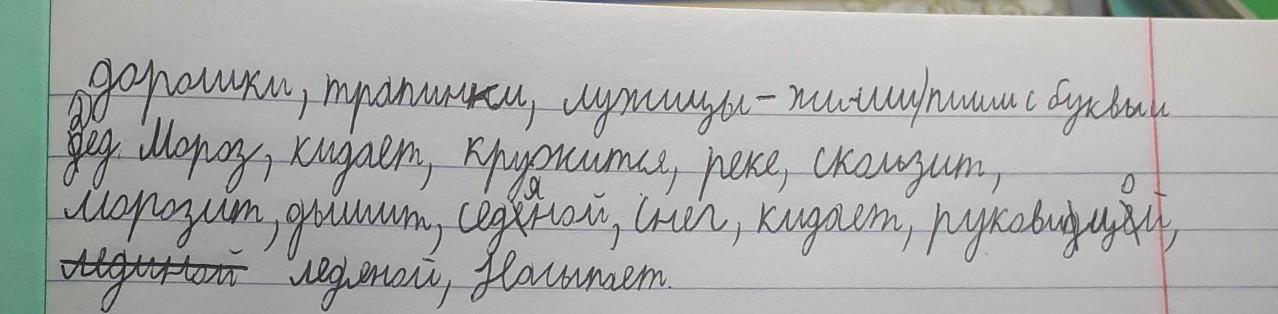 дорошки, трапинки, лужицы - жиши/пиши с буквы и
дед. Мороз, кидает, кружится, реке, скользит,
морозит, дышит, седяной, Снег, кидает, руковицой,
ледяной, Насыпает.